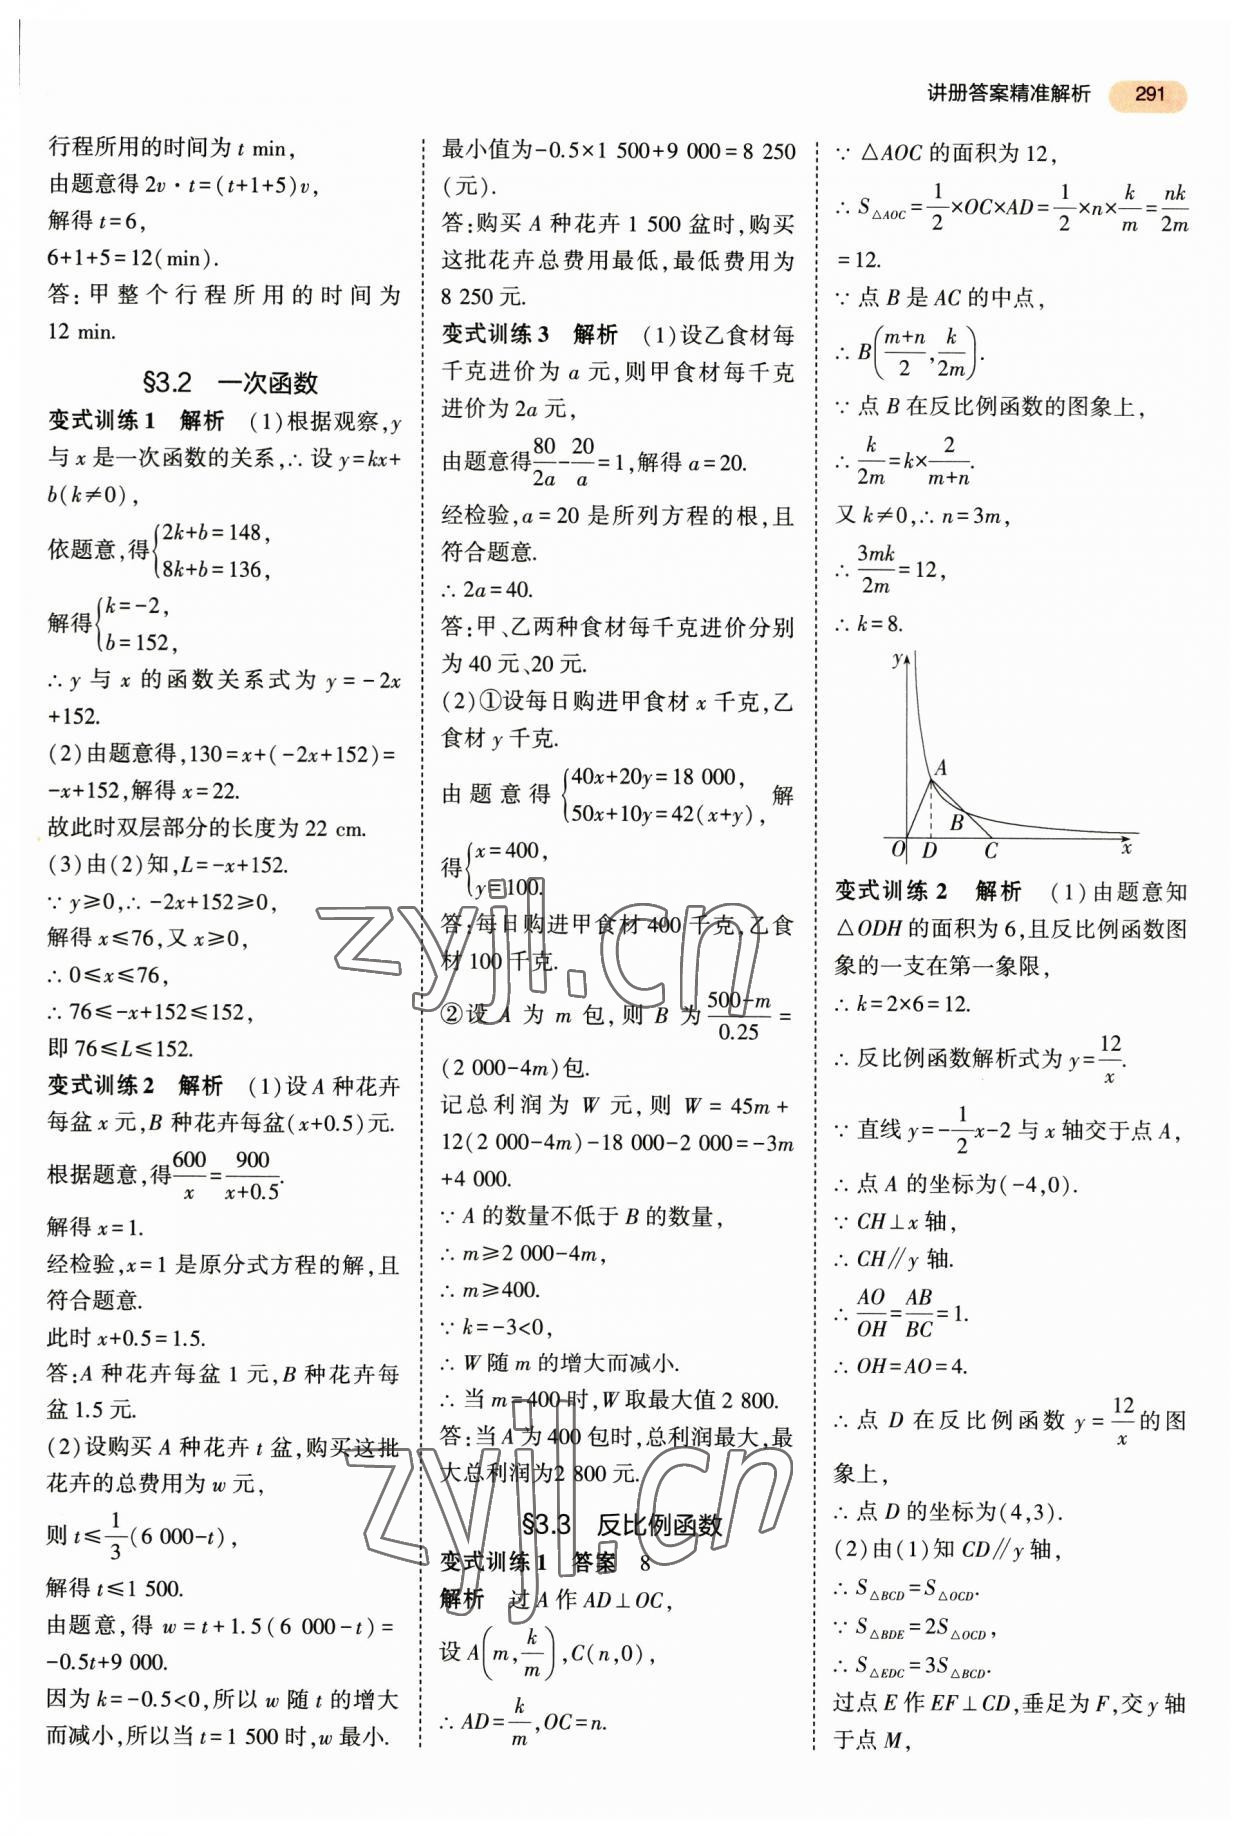 讲册答案精准解析 291
行程所用的时间为 t min，
由题意得 2v·t=(t+1+5)v，
解得 t=6，
6+1+5=12(min).
答：甲整个行程所用的时间为
12 min.
§3.2 一次函数
变式训练1 解析 (1)根据观察，y
与 x 是一次函数的关系，∴ 设 y=kx+
b(k≠0)，
依题意，得{2k+b=148，
8k+b=136，
解得{k=-2，
b=152，
∴ y 与 x 的函数关系式为 y=-2x
+152.
(2)由题意得，130=x+(-2x+152)=
-x+152，解得 x=22.
故此时双层部分的长度为 22 cm.
(3)由(2)知，L=-x+152.
∵ y≥0，∴ -2x+152≥0，
解得 x≤76，又 x≥0，
∴ 0≤x≤76，
∴ 76≤-x+152≤152，
即 76≤L≤152.
变式训练2 解析 (1)设 A 种花卉
每盆 x 元，B 种花卉每盆(x+0.5)元.
根据题意，得600/x=900/(x+0.5).
解得 x=1.
经检验，x=1 是原分式方程的解，且
符合题意.
此时 x+0.5=1.5.
答：A 种花卉每盆 1 元，B 种花卉每
盆 1.5 元.
(2)设购买 A 种花卉 t 盆，购买这批
花卉的总费用为 w 元，
则 t≤1/3(6 000-t)，
解得 t≤1 500.
由题意，得 w=t+1.5(6 000-t)=
-0.5t+9 000.
因为 k=-0.5<0，所以 w 随 t 的增大
而减小，所以当 t=1 500 时，w 最小.
最小值为-0.5×1 500+9 000=8 250
(元).
答：购买 A 种花卉 1 500 盆时，购买
这批花卉总费用最低，最低费用为
8 250 元.
变式训练3 解析 (1)设乙食材每
千克进价为 a 元，则甲食材每千克
进价为 2a 元，
由题意得80/2a-20/a=1，解得 a=20.
经检验，a=20 是所列方程的根，且
符合题意.
∴ 2a=40.
答：甲、乙两种食材每千克进价分别
为 40 元、20 元.
(2)①设每日购进甲食材 x 千克，乙
食材 y 千克.
由题意得{40x+20y=18 000，
50x+10y=42(x+y)， 解
得{x=400，
y=100.
答：每日购进甲食材 400 千克，乙食
材 100 千克.
②设 A 为 m 包，则 B 为(500-m)/0.25=
(2 000-4m)包.
记总利润为 W 元，则 W=45m+
12(2 000-4m)-18 000-2 000=-3m
+4 000.
∵ A 的数量不低于 B 的数量，
∴ m≥2 000-4m，
∴ m≥400.
∵ k=-3<0，
∴ W 随 m 的增大而减小.
∴ 当 m=400 时，W 取最大值 2 800.
答：当 A 为 400 包时，总利润最大，最
大总利润为 2 800 元.
§3.3 反比例函数
变式训练1 答案 8
解析 过 A 作 AD⊥OC，
设 A(m，k/m)，C(n，0)，
∴ AD=k/m，OC=n.
∵ △AOC 的面积为 12，
∴ S△AOC=1/2×OC×AD=1/2×n×k/m=nk/2m
=12.
∵ 点 B 是 AC 的中点，
∴ B((m+n)/2，k/2m).
∵ 点 B 在反比例函数的图象上，
∴ k/2m=k×2/(m+n).
又 k≠0，∴ n=3m，
∴ 3mk/2m=12，
∴ k=8.
y
A
B
O D C x
变式训练2 解析 (1)由题意知
△ODH 的面积为 6，且反比例函数图
象的一支在第一象限，
∴ k=2×6=12.
∴ 反比例函数解析式为 y=12/x.
∵ 直线 y=-1/2x-2 与 x 轴交于点 A，
∴ 点 A 的坐标为(-4，0).
∵ CH⊥x 轴，
∴ CH∥y 轴.
∴ AO/OH=AB/BC=1.
∴ OH=AO=4.
∴ 点 D 在反比例函数 y=12/x的图
象上，
∴ 点 D 的坐标为(4，3).
(2)由(1)知 CD∥y 轴，
∴ S△BCD=S△OCD.
∵ S△BDE=2S△OCD，
∴ S△EDC=3S△BCD.
过点 E 作 EF⊥CD，垂足为 F，交 y 轴
于点 M，
zyjl.cn
zyjl.cn